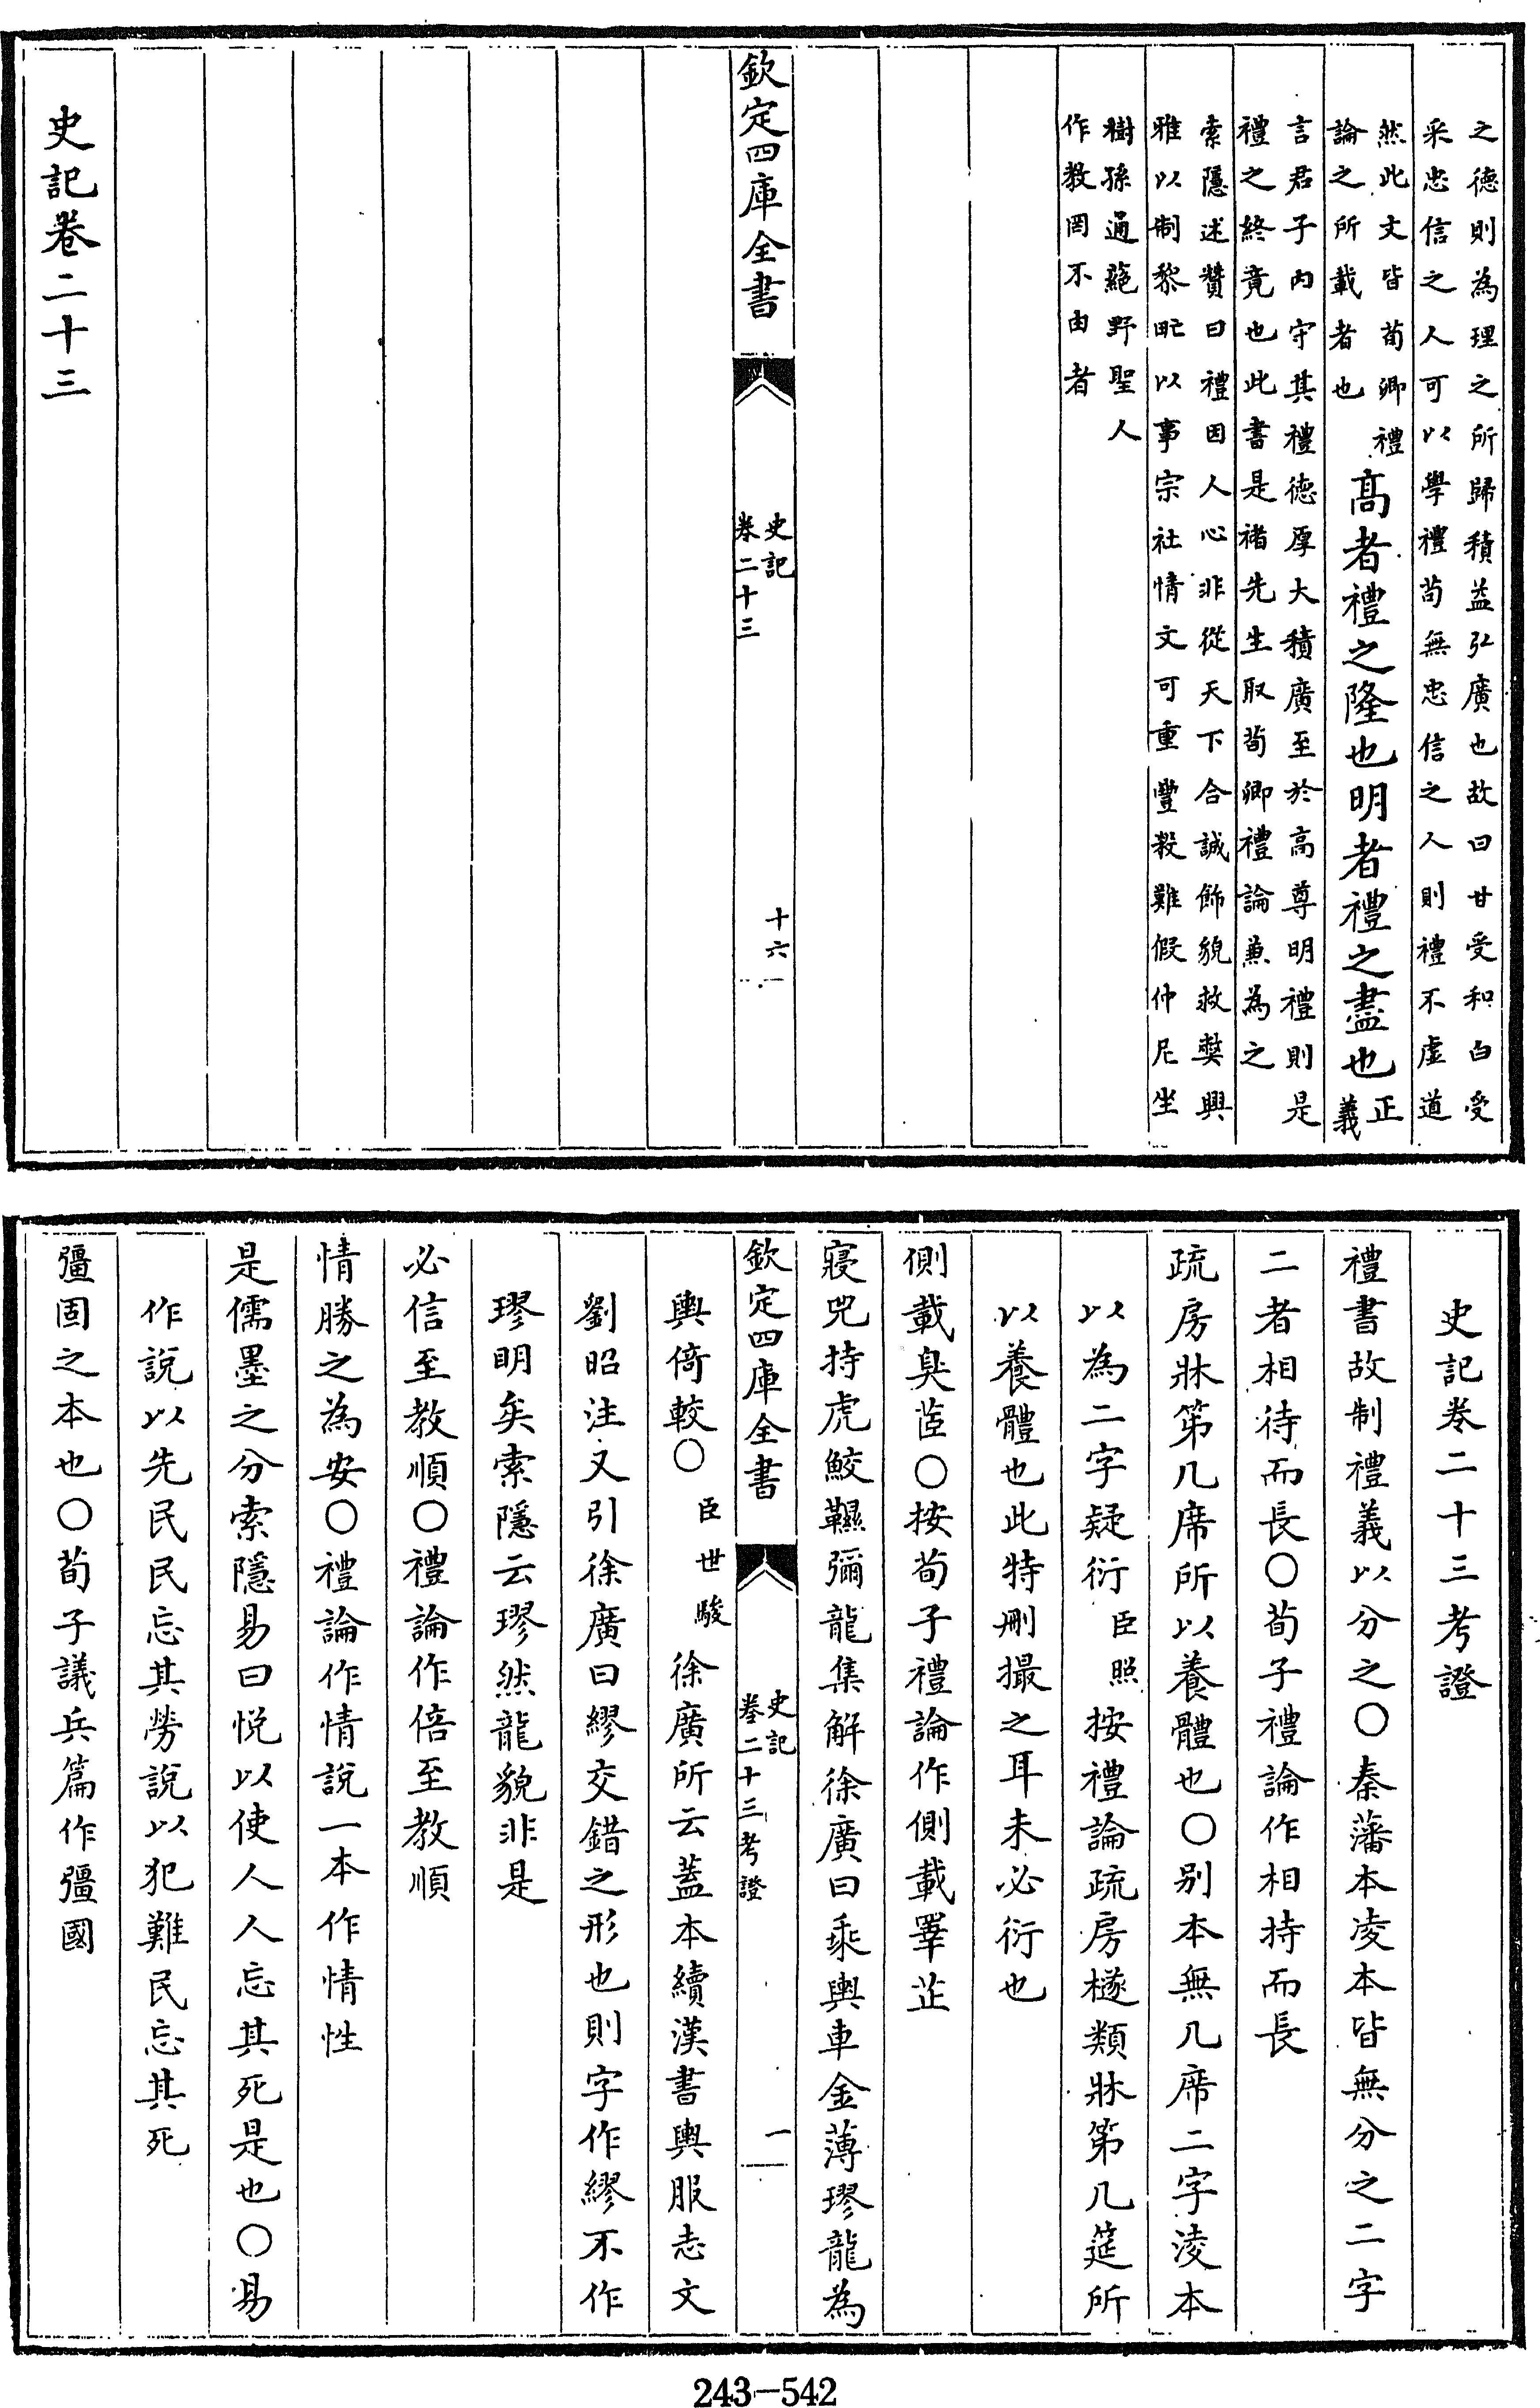 之德則為理之所歸積益弘廣也故曰甘受和白受
采忠信之人可以學禮苟無忠信之人則禮不虛道
然此文皆荀卿禮
論之所載者也
高者禮之隆也明者禮之盡也
正
義
言君子内守其禮德厚大積廣至於高尊明禮則是
禮之終竟也此書是褚先生取荀卿禮論兼為之
索隱述贊曰禮因人心非從天下合誠飾貌救獘興
雅以制黎甿以事宗社情文可重豐殺難假仲尼坐
樹孫通蕝野聖人
作教罔不由者
欽定四庫全書
史記
卷二十三
十六
史記卷二十三
史記卷二十三考證
禮書故制禮義以分之○秦藩本凌本皆無分之二字
二者相待而長○荀子禮論作相持而長
疏房牀第几席所以養體也○别本無几席二字淩本
以為二字疑衍臣照按禮論疏房檖類牀第几筵所
以養體也此特刪撮之耳未必衍也
側載臭茝○按荀子禮論作側載睪芷
寢兕持虎鮫韅彌龍集解徐廣曰乘輿車金薄璆龍為
輿倚較○臣世駿徐廣所云蓋本續漢書輿服志文
劉昭注又引徐廣曰繆交錯之形也則字作繆不作
璆明矣索隱云璆然龍貌非是
必信至教順○禮論作倍至教順
情勝之為安○禮論作情說一本作情性
是儒墨之分索隱易曰悦以使人人忘其死是也○易
作説以先民民忘其勞説以犯難民忘其死
彊固之本也○荀子議兵篇作彊國
欽定四庫全書
史記
卷二十三考證
一
243-542